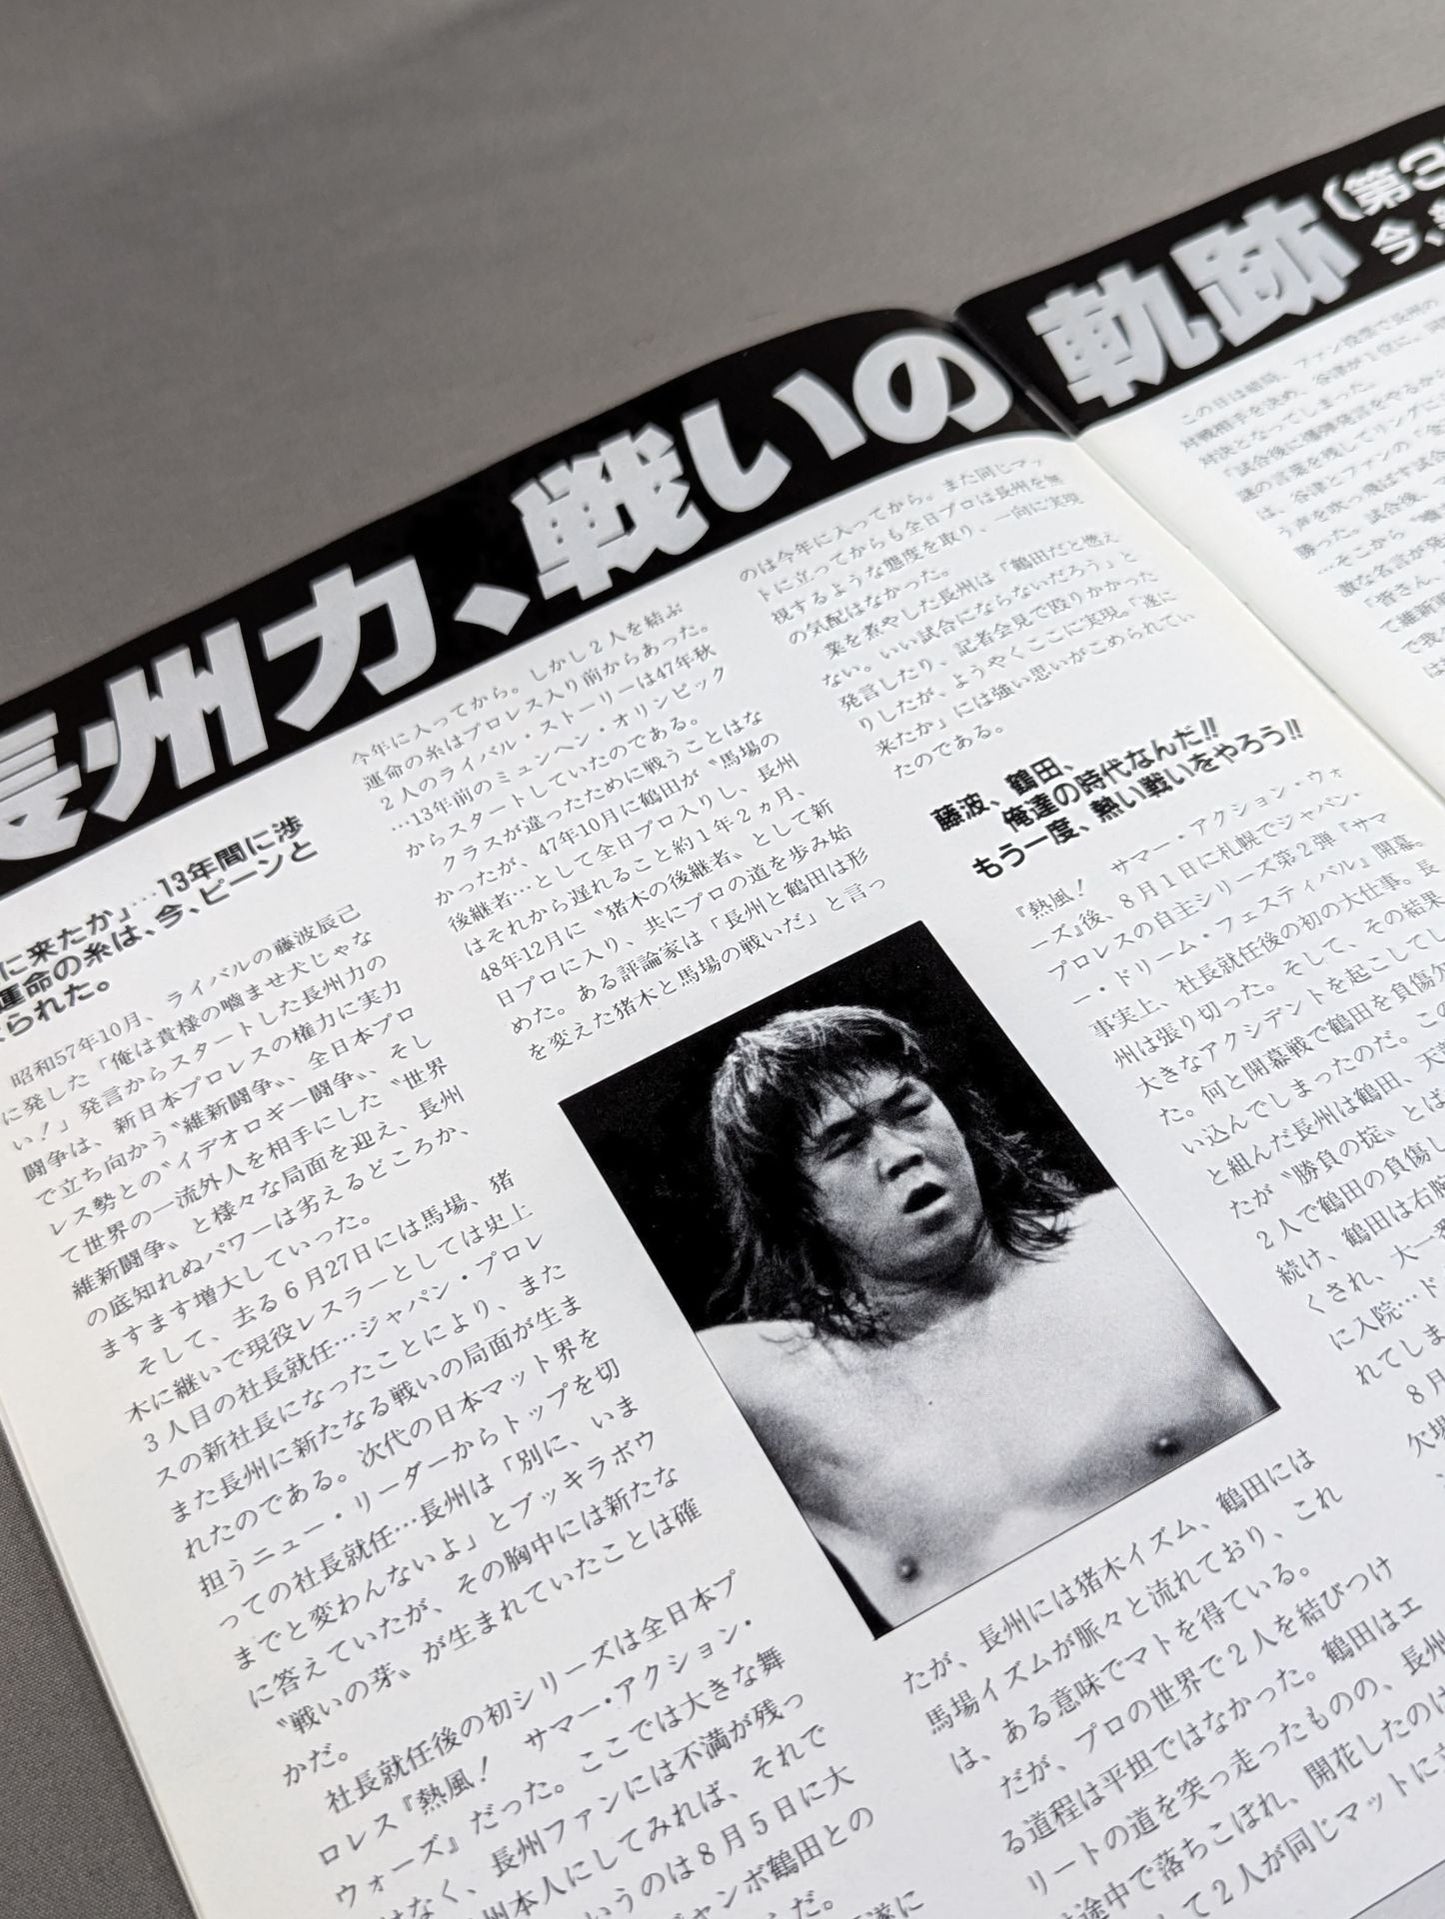 長州力、戦いの軌跡
(第3
今、
に来たか」…13年間に渉
運命の糸は、今、ピーンと
られた。
昭和57年10月、ライバルの藤波辰己
に発した「俺は貴様の噛ませ犬じゃな
い！」発言からスタートした長州力の
闘争は、新日本プロレスの権力に実力
で立ち向かう〝維新闘争〟、全日本プロ
レス勢との〝イデオロギー闘争〟、そし
て世界の一流外人を相手にした〝世界
維新闘争〟と様々な局面を迎え、長州
の底知れぬパワーは劣えるどころか、
ますます増大していった。
そして、去る6月27日には馬場、猪
木に継いで現役レスラーとしては史上
3人目の社長就任…ジャパン・プロレ
スの新社長になったことにより、また
また長州に新たなる戦いの局面が生ま
れたのである。次代の日本マット界を
担うニュー・リーダーからトップを切
っての社長就任…長州は「別に、いま
までと変わんないよ」とブッキラボウ
に答えていたが、その胸中には新たな
〝戦いの芽〟が生まれていたことは確
かだ。
社長就任後の初シリーズは全日本プ
ロレス『熱風！　サマー・アクション・
ウォーズ』だった。ここでは大きな舞
はなく、長州ファンには不満が残っ
州本人にしてみれば、それで
いうのは8月5日に大
ャンボ鶴田との
だ。
遂に
今年に入ってから。しかし2人を結ぶ
運命の糸はプロレス入り前からあった。
2人のライバル・ストーリーは47年秋
…13年前のミュンヘン・オリンピック
からスタートしていたのである。
クラスが違ったために戦うことはな
かったが、47年10月に鶴田が〝馬場の
後継者…として全日プロ入りし、長州
はそれから遅れること約1年2ヵ月、
48年12月に〝猪木の後継者〟として新
日プロに入り、共にプロの道を歩み始
めた。ある評論家は「長州と鶴田は形
を変えた猪木と馬場の戦いだ」と言っ
たが、長州には猪木イズム、鶴田には
馬場イズムが脈々と流れており、これ
は、ある意味でマトを得ている。
だが、プロの世界で2人を結びつけ
る道程は平坦ではなかった。鶴田はエ
リートの道を突っ走ったものの、長州
途中で落ちこぼれ、開花したのは
て2人が同じマットに
のは今年に入ってから。また同じマッ
トに立ってからも全日プロは長州を無
視するような態度を取り、一向に実現
の気配はなかった。
業を煮やした長州は「鶴田だと燃え
ない。いい試合にならないだろう」と
発言したり、記者会見で殴りかかった
りしたが、ようやくここに実現。「遂に
来たか」には強い思いがこめられてい
たのである。
藤波、鶴田、
俺達の時代なんだ!!
もう一度、熱い戦いをやろう!!
『熱風！　サマー・アクション・ウォ
ーズ』後、8月1日に札幌でジャパン・
プロレスの自主シリーズ第2弾『サマ
ー・ドリーム・フェスティバル』開幕。
事実上、社長就任後の初の大仕事。長
州は張り切った。そして、その結果
大きなアクシデントを起こしてし
た。何と開幕戦で鶴田を負傷欠
い込んでしまったのだ。この
と組んだ長州は鶴田、天
たが〝勝負の掟〟とば
2人で鶴田の負傷し
続け、鶴田は右腕
くされ、大一番
に入院…ド
れてしま
8月
欠場
この日は結局、ファン投票で長州の
対戦相手を決め、谷津が1位に。同
対決となってしまった。
「試合後に爆弾発言をやるから
謎の言葉を残してリングに
は、谷津とファンの「金
う声を吹っ飛ばす試合
勝った。試合後、マ
…そこから〝噛
激な名言が発
「皆さん、
て維新軍
で我
は